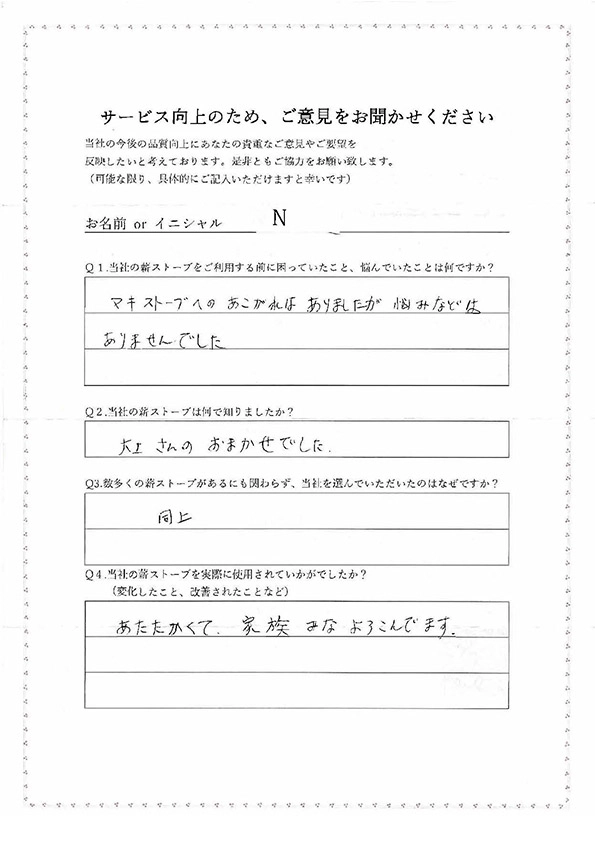 サービス向上のため、ご意見をお聞かせください
当社の今後の品質向上にあなたの貴重なご意見やご要望を
反映したいと考えております。是非ともご協力をお願い致します。
（可能な限り、具体的にご記入いただけますと幸いです）
お名前 or イニシャル N
Q1.当社の薪ストーブをご利用する前に困っていたこと、悩んでいたことは何ですか？
マキストーブへの あこがれは ありましたが 悩みなどは
ありませんでした
Q2.当社の薪ストーブは何で知りましたか？
大工さんの おまかせでした.
Q3.数多くの薪ストーブがあるにも関わらず、当社を選んでいただいたのはなぜですか？
同上
Q4.当社の薪ストーブを実際に使用されていかがでしたか？
（変化したこと、改善されたことなど）
あたたかくて. 家族 みな よろこんでます.